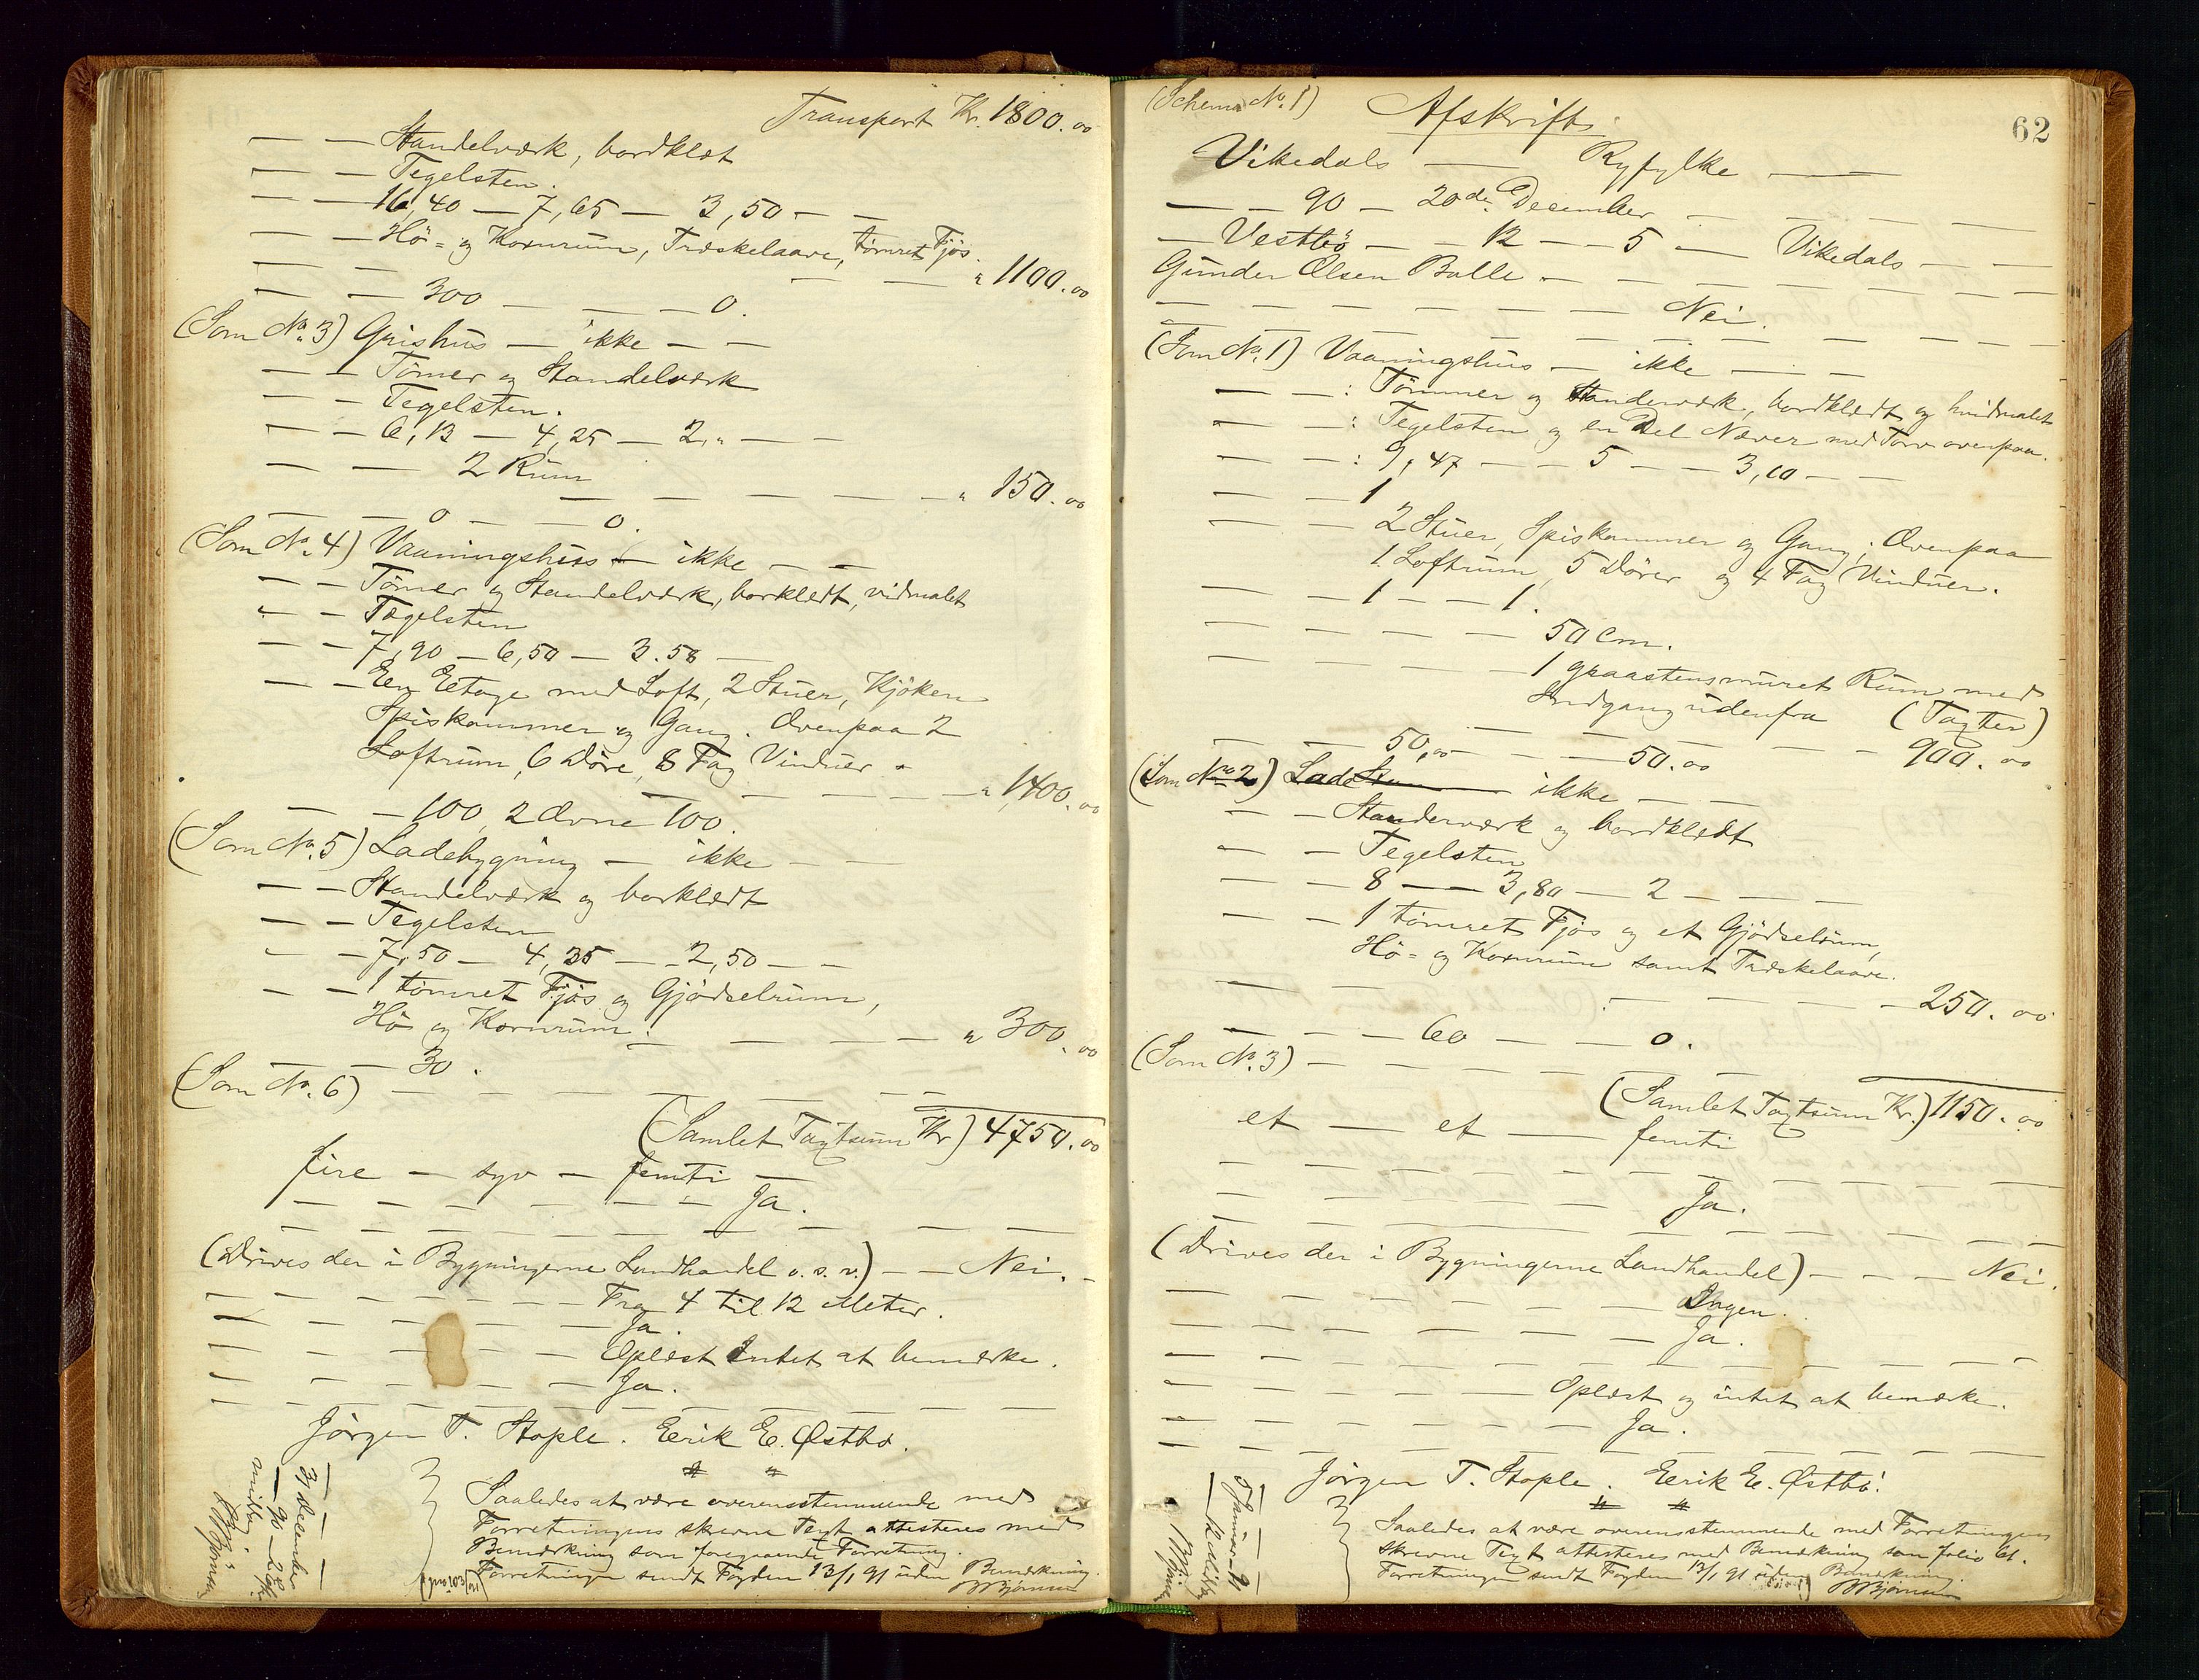 Transport Kr. 1800.00
— — Standelværk, bordklæt
— — Tegelsten.
— — 16,40 — 7,65 — 3,50 — —
— — Hö= og Kornrum, Træskelaave, tömret Fjös.
— — — — — " 1100.00
— — 300 — — — 0.
(Som No. 3) Grishus — ikke — —
— — Tömer og Standelværk
— — Tegelsten.
— — 6,12 — 4,25 — 2," — —
— — 2 Rum
— — — — — " 150.00
— — 0 — — 0.
(Som No. 4) Vaaningshus — ikke — —
— — Tömer og Standelværk, borklædt, vidmalet
— — Tægelsten
— — 7,90 — 6,50 — 3.58 —
— — Een Eetage med Loft, 2 Stuer, Kjöken
Spiskammer og Gang. Ovenpaa 2
Loftrum, 6 Döre, 8 Fag Vinduer.
— — — — — " 1400.00
— — 100, 2 Ovne 100.
(Som No. 5) Ladebygning — ikke — —
— — Standelværk og borklædt
— — Tegelsten
— — 7,50 — 4,25 — 2,50 — —
— — 1 tömret Fjös og Gjödselrum,
Hö og Kornrum.
— — — — — " 300.00
— — 30.
(Som No. 6) — — — — — —
(Samlet Taxtsum Kr) 4750.00
fire — syv — femti —
— — — — — — Ja.
— — — — — — — —
(Drives der i Bygningerne Landhandel o.s.v.) — — Nei. —
— — — — — — Fra 4 til 12 Meter.
— — — — — — Ja.
— — — — — — Oplæst Intet at bemærke.
— — — — — — Ja.
— — — — — — — —
Jörgen T. Stople. Eerik E. Østbö.
Saaledes at være overensstemmende med
Forretningens skrevne Text attesteres med
Bemærkning som foregaaende Forretning.
Forretningen sendt Fogden 13/1 91 uden Bemærkning.
BBjörnsen
31 December
— 90 —
(Schema No. 1) Afskrift.
62
Vikedals — Ryfylke —
— — 90 — 20de December — — —
— Vestbö — — 12 — — 5 — Vikedals — —
Gunder Olsen Balle — — — — — —
— — — — — — — Nei.
— — — — — — — —
(Som No. 1) Vaaningshus — ikke — —
— — : Tömmer og Standerværk, bordklædt og hvidmalet
— — : Tegelsten og en Del Næver med Torv ovenpaa.
— — : 9,47 — — 5 — — 3,10 — —
— — 1
— — 2 Stuer, Spiskammer og Gang; Ovenpaa
1 Loftrum, 5 Dörer og 4 Fag Vinduer.
— — 1 — — 1.
— — — — — 50 Cm.
— — — — — 1 graastensmuret Rum med
Indgang udenfra (Taxter)
— — — — — 900.00
— — 50,00 — — 50.00
(Som No 2) Lade ikke — —
— — Standerværk og bordklædt
— — Tegelsten
— — 8 — — 3,80 — 2 — — —
— — 1 tömret Fjös og et Gjödselrum,
Hö= og Kornrum samt Træskelaave.
— — — — — — 250.00
— — — 60 — — 0.
(Som No. 3) — — — — — —
(Samlet Taxtsum Kr.) 1150.00
et — et — femti
— — — — — — — —
— — — — — — Ja.
— — — — — — — —
(Drives der i Bygningerne Landhandel) — — — Nei.
— — — — — — Ingen.
— — — — — — Ja.
— — — — — — — —
— — — — — Oplæst og intet at bemærke.
— — — — — Ja.
— — — — — — — —
Jörgen T. Stople. Eerik E. Østbö.
Saaledes at være overensstemmende med Forretningens
skrevne Text attesteres med Bemærkning som folio 61.
Forretningen sendt Fogden 13/1 91 uden Bemærkning.
BBjörnsen
5 Januar
BBjörnsen